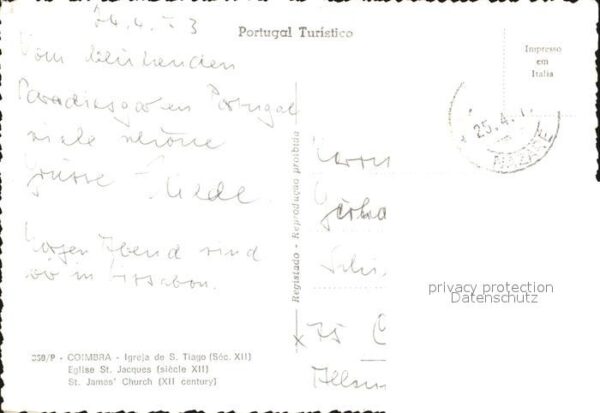 Portugal Turístico
Impresso
em
Italia
24.4.73
Vom blühenden
Paradiesgarten Portugal
viele schöne
Grüsse
Morgen Abend sind
wir in Lissabon.
25.4.
NAZARE
Registado - Reproduçao proibida
Herrn
x 75
privacy protection
Datenschutz
350/P - COIMBRA - Igreja de S. Tiago (Séc. XII)
Eglise St. Jacques (siècle XII)
St. James' Church (XII century)